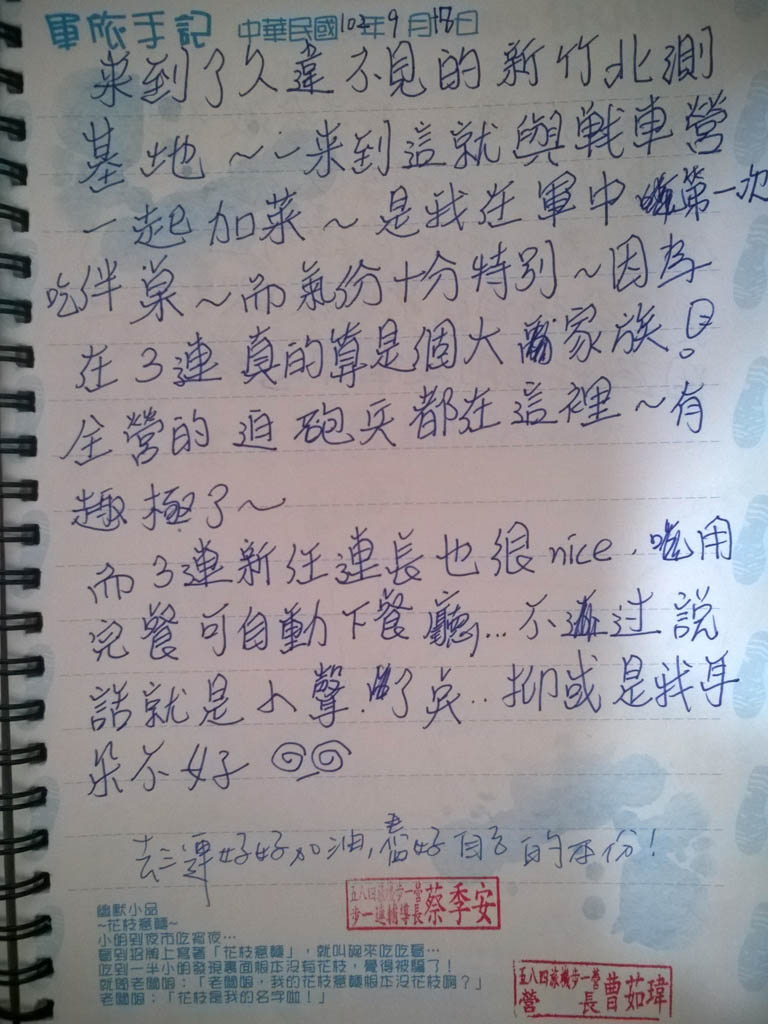 軍旅手記 中華民國103年9月18日
來到了久違不見的新竹北測
基地～～來到這就與戰車營
一起加菜～是我在軍中第一次
吃伴桌～而氣份十分特別～因為
在3連真的算是個大家族！
全營的迫砲兵都在這裡～有
趣極了～
而3連新任連長也很nice，用
完餐可自動下餐廳...不过說
話就是小聲了點..抑或是我耳
朵不好
去三連好好加油,看好自己的本份!
五八四旅機步一營
步一連輔導長 蔡季安
幽默小品
～花枝意麵～
小明到夜市吃宵夜…
看到招牌上寫著「花枝意麵」，就叫碗來吃吃看…
吃到一半小明發現裏面根本沒有花枝，覺得被騙了！
就問老闆娘：「老闆娘，我的花枝意麵根本沒花枝啊？」
老闆娘：「花枝是我的名字啦！」
五八四旅機步一營
營 長 曹茹瑋